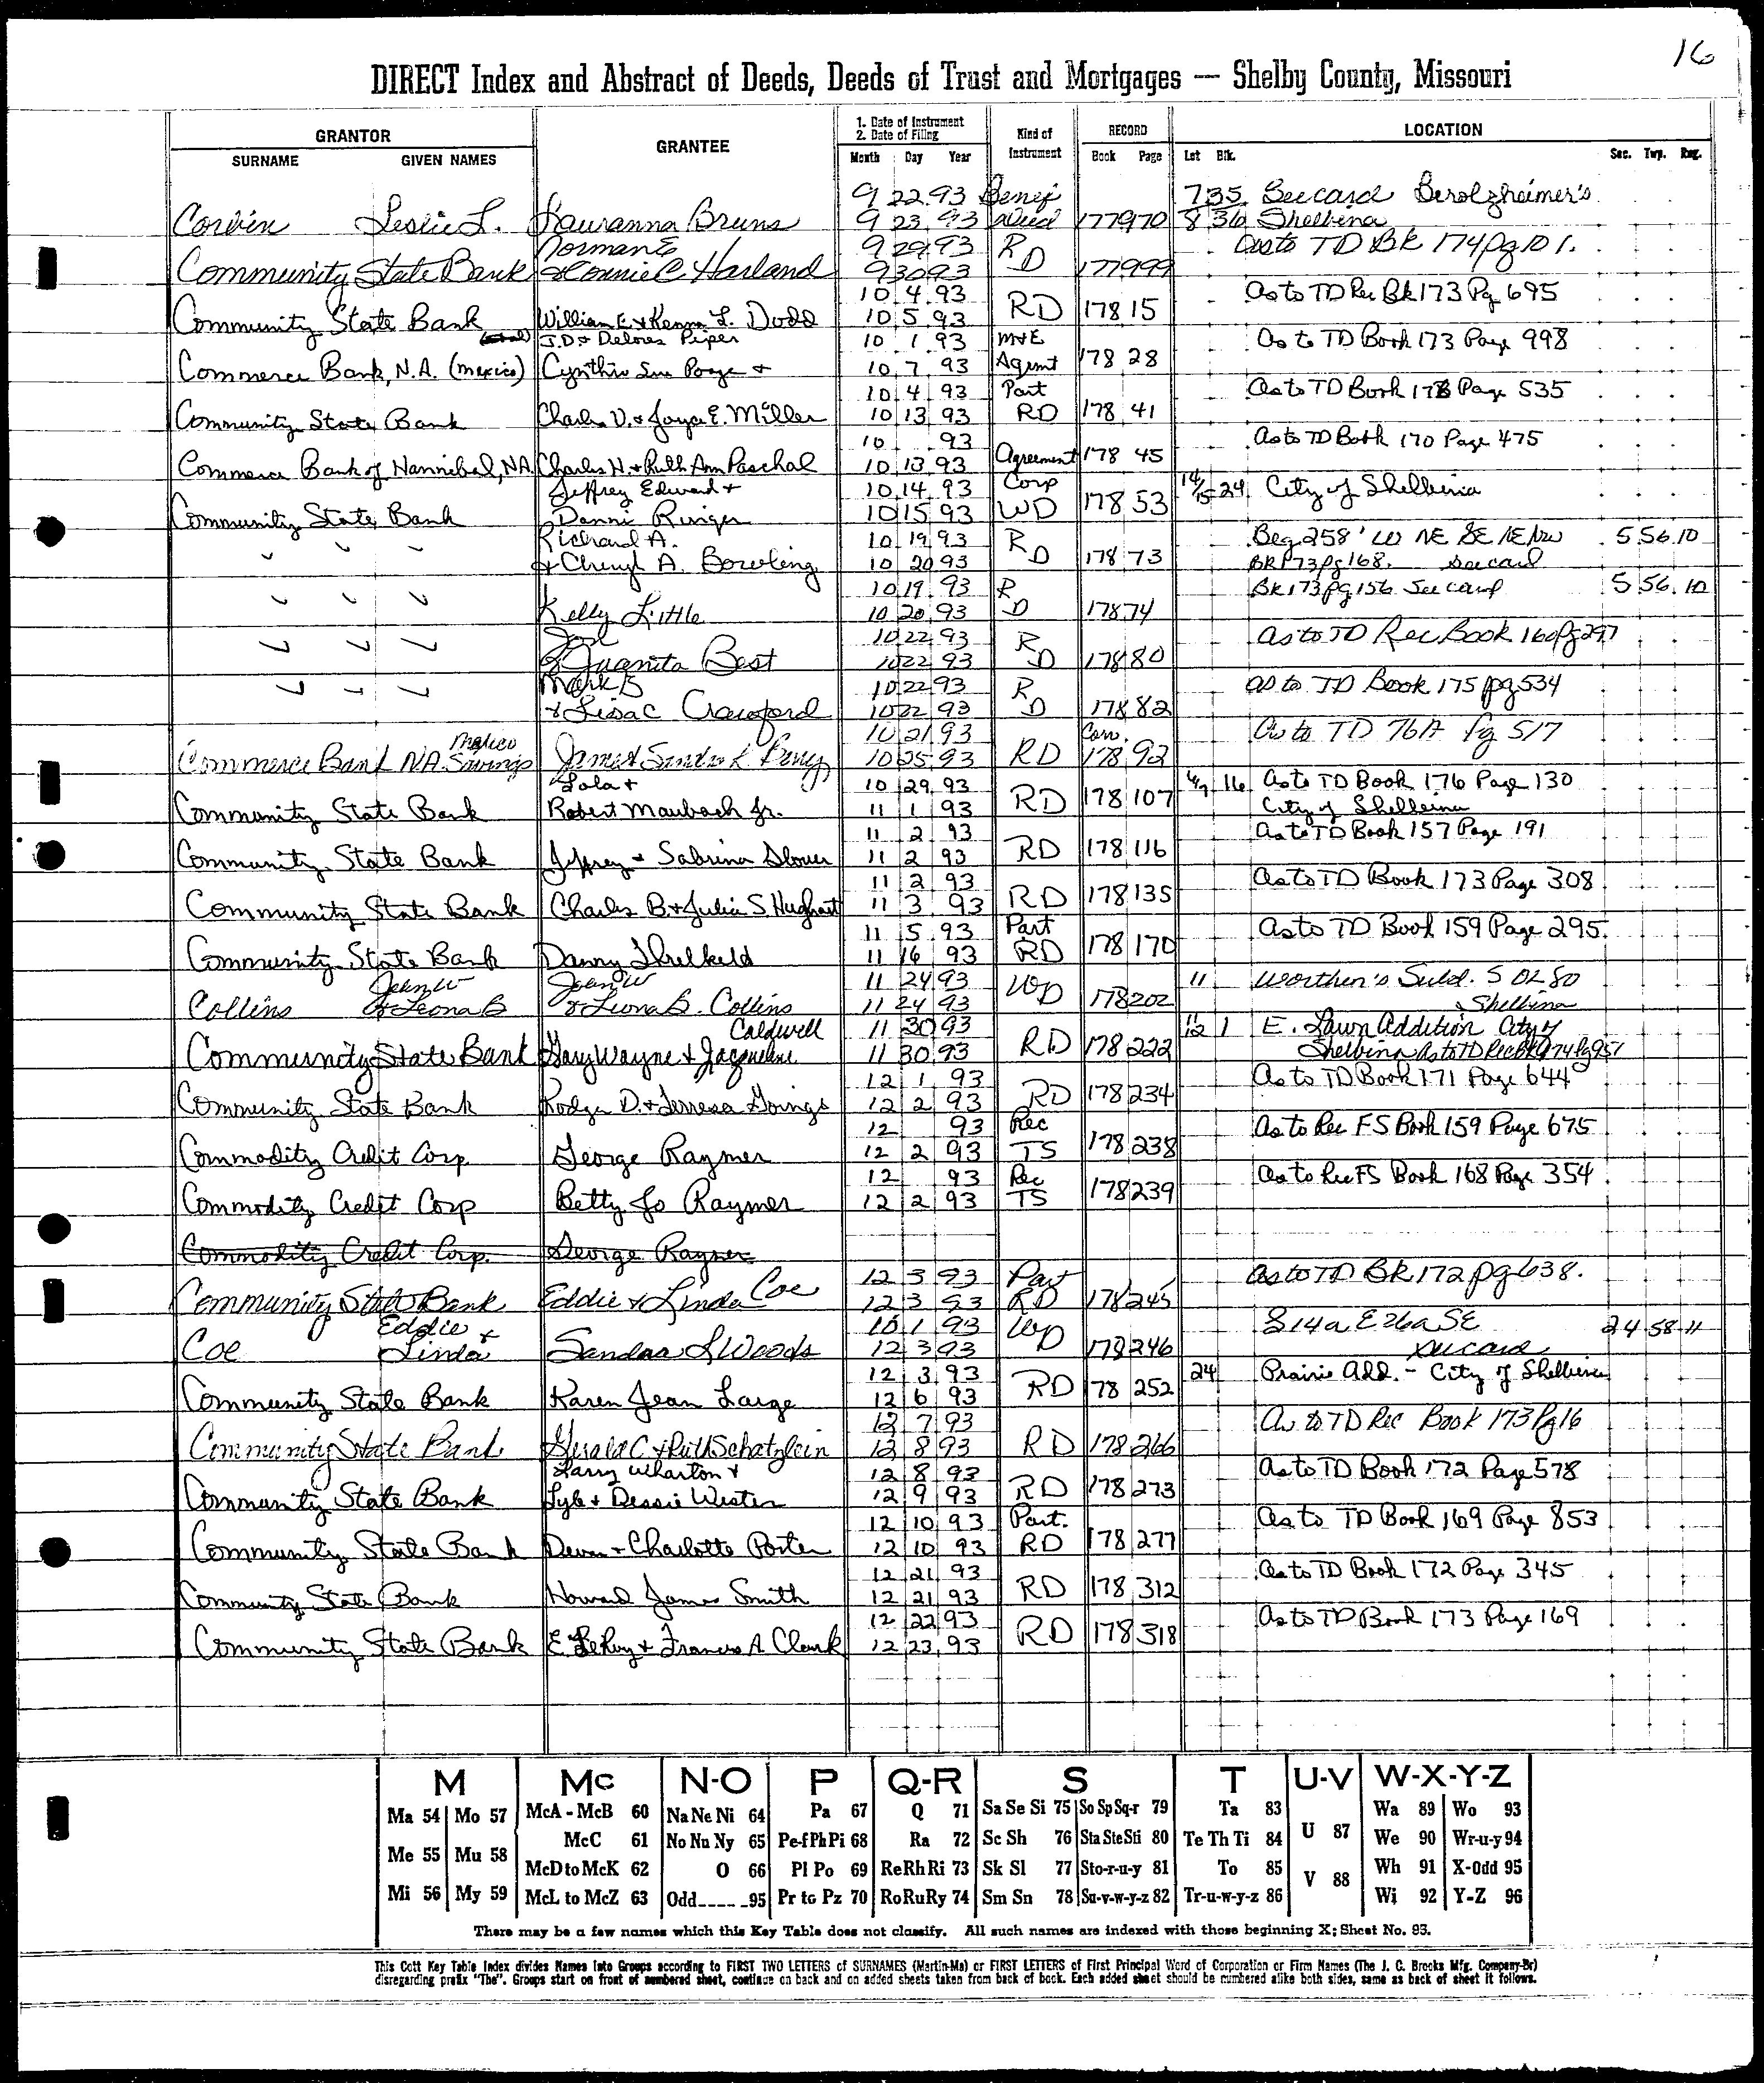 16
DIRECT Index and Abstract of Deeds, Deeds of Trust and Mortgages — Shelby County, Missouri
GRANTOR
SURNAME GIVEN NAMES
GRANTEE
1. Date of Instrument
2. Date of Filing
Month Day Year
Kind of Instrument
RECORD
Book Page
LOCATION
Lot Blk. Sec. Twp. Rng.
9 22 93 Benef 735 See card Berolzheimer's
Corbin Leslie L. Lauranna Bruns 9 23 93 Deed 177 970 8 36 Shelbina
Norman E 9 29 93 R As to TD Bk 174 pg 101.
Community State Bank & Connie C Harland 9 30 93 D 177 999
10 4 93 As to TD Rec Bk 173 Pg 695
Community State Bank William E. & Kenna L. Dodd 10 5 93 RD 178 15
J.D & Delores Piper 10 1 93 M&E As to TD Book 173 Page 998
Commerce Bank, N.A. (Mexico) Cynthia Sue Page & 10 7 93 Agemt 178 28
10 4 93 Part As to TD Book 178 Page 535
Community State Bank Charles V. & Joyce E. Miller 10 13 93 RD 178 41
10 93 As to TD Book 170 Page 475
Commerce Bank of Hannibal, NA Charles H. & Ruth Ann Paschal 10 13 93 Agreement 178 45
Jeffrey Edward & 10 14 93 Corp 14/15 24 City of Shelbina
Community State Bank Danni Ringer 10 15 93 WD 178 53
Richard A. 10 19 93 R Beg 258' W NE SE NE NW 5 56 10
✓ ✓ ✓ & Cheryl A. Bowling 10 20 93 D 178 73 BK 173 pg 168. See card
10 19 93 R Bk 173 pg 156 See card 5 56 10
✓ ✓ ✓ Kelly Little 10 20 93 D 178 74
Joe 10 22 93 R As to TD Rec Book 160 pg 297
✓ ✓ ✓ & Juanita Best 10 22 93 D 178 80
Mark B 10 22 93 R as to TD Book 175 pg 534
✓ ✓ ✓ & Lisa C Crawford 10 22 93 D 178 82
Mexico 10 21 93 Corr. As to TD 76A Pg 517
Commerce Bank N.A. Savings James & Sandra L Perry 10 25 93 RD 178 92
Lola & 10 29 93 6/7 16 As to TD Book 176 Page 130
Community State Bank Robert Maubach Jr. 11 1 93 RD 178 107 City of Shelbina
11 2 93 As to TD Book 157 Page 191
Community State Bank Jeffrey & Sabrina Slover 11 2 93 RD 178 116
11 2 93 As to TD Book 173 Page 308
Community State Bank Charles B. & Julia S Hughart 11 3 93 RD 178 135
11 5 93 Part As to TD Book 159 Page 295.
Community State Bank Danny Threlkeld 11 16 93 RD 178 170
Jean W Jean W 11 24 93 11 Worthen's Subd. 5 OL 80
Collins & Leona B & Leona B. Collins 11 24 93 WD 178 202 Shelbina
Caldwell 11 30 93 11/12 1 E. Lawn Addition City of
Community State Bank Gary Wayne & Jacqueline 11 30 93 RD 178 222 Shelbina As to TD Rec Bk 174 pg 951
12 1 93 As to TD Book 171 Page 644
Community State Bank Rodge D. & Terresa Goings 12 2 93 RD 178 234
12 93 Rec As to Rec FS Book 159 Page 675
Commodity Credit Corp. George Raymer 12 2 93 TS 178 238
12 93 Rec As to Rec FS Book 168 Page 354
Commodity Credit Corp Betty Jo Raymer 12 2 93 TS 178 239
Commodity Credit Corp. George Raymer
12 3 93 Part As to TD Bk 172 pg 638.
Community State Bank Eddie & Linda Coe 12 3 93 RD 178 245
Eddie & 10 1 93 S 14a E 26a SE 24 58 11
Coe Linda Sandra L Woods 12 3 93 WD 178 246 See card
12 3 93 24 Prairie Add. - City of Shelbina
Community State Bank Karen Jean Large 12 6 93 RD 178 252
12 7 93 As to TD Rec Book 173 Pg 16
Community State Bank Gerald C & Ruth Schatzlein 12 8 93 RD 178 266
Larry Wharton & 12 8 93 As to TD Book 172 Page 578
Community State Bank Lyle & Dessie Wester 12 9 93 RD 178 273
12 10 93 Part. As to TD Book 169 Page 853
Community State Bank Devon & Charlotte Porter 12 10 93 RD 178 277
12 21 93 As to TD Book 172 Page 345
Community State Bank Howard James Smith 12 21 93 RD 178 312
12 22 93 As to TD Book 173 Page 169
Community State Bank E. LeRoy & Frances A. Clark 12 23 93 RD 178 318
M Mc N-O P Q-R S T U-V W-X-Y-Z
Ma 54 Mo 57 McA - McB 60 Na Ne Ni 64 Pa 67 Q 71 Sa Se Si 75 So Sp Sq-r 79 Ta 83 U 87 Wa 89 Wo 93
Me 55 Mu 58 McC 61 No Nu Ny 65 Pe-f Ph Pi 68 Ra 72 Sc Sh 76 Sta Ste Sti 80 Te Th Ti 84 We 90 Wr-u-y 94
McD to McK 62 O 66 Pl Po 69 Re Rh Ri 73 Sk Sl 77 Sto-r-u-y 81 To 85 V 88 Wh 91 X-Odd 95
Mi 56 My 59 McL to McZ 63 Odd 95 Pr to Pz 70 Ro Ru Ry 74 Sm Sn 78 Su-v-w-y-z 82 Tr-u-w-y-z 86 Wi 92 Y-Z 96
There may be a few names which this Key Table does not classify. All such names are indexed with those beginning X; Sheet No. 93.
This Cott Key Table Index divides Names into Groups according to FIRST TWO LETTERS of SURNAMES (Martin-Ma) or FIRST LETTERS of First Principal Word of Corporation or Firm Names (The J. C. Brooks Mfg. Company-Br)
disregarding prefix "The". Groups start on front of numbered sheet, continue on back and on added sheets taken from back of book. Each added sheet should be numbered alike both sides, same as back of sheet it follows.